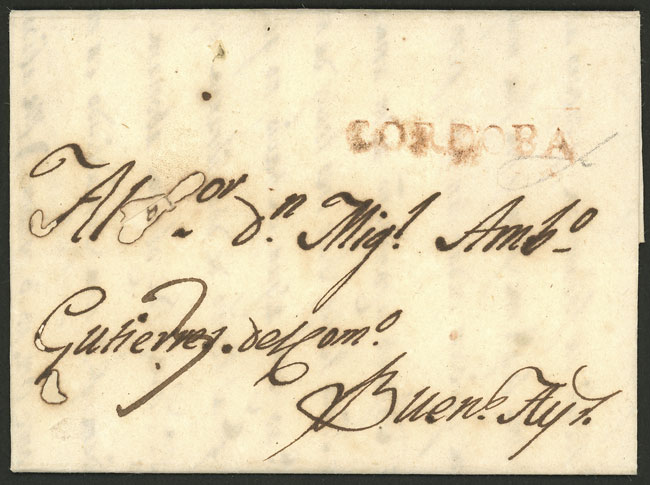 CORDOBA
Al S.or d.n Mig.l Amb.o
Gutierrez. del Com.o
Buen.s Ay.s